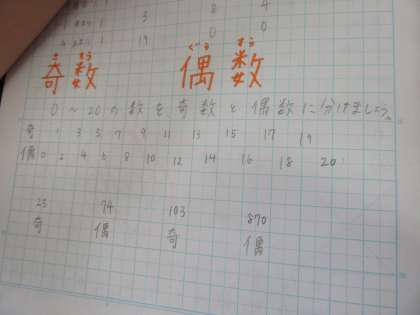 3 8 4
19 0 0
き すう ぐう すう
奇数 偶数
0~20の数を奇数と偶数に分けましょう。
奇 1 3 5 7 9 11 13 15 17 19
偶 0 2 4 6 8 10 12 14 16 18 20
23 74 103 870
奇 偶 奇 偶